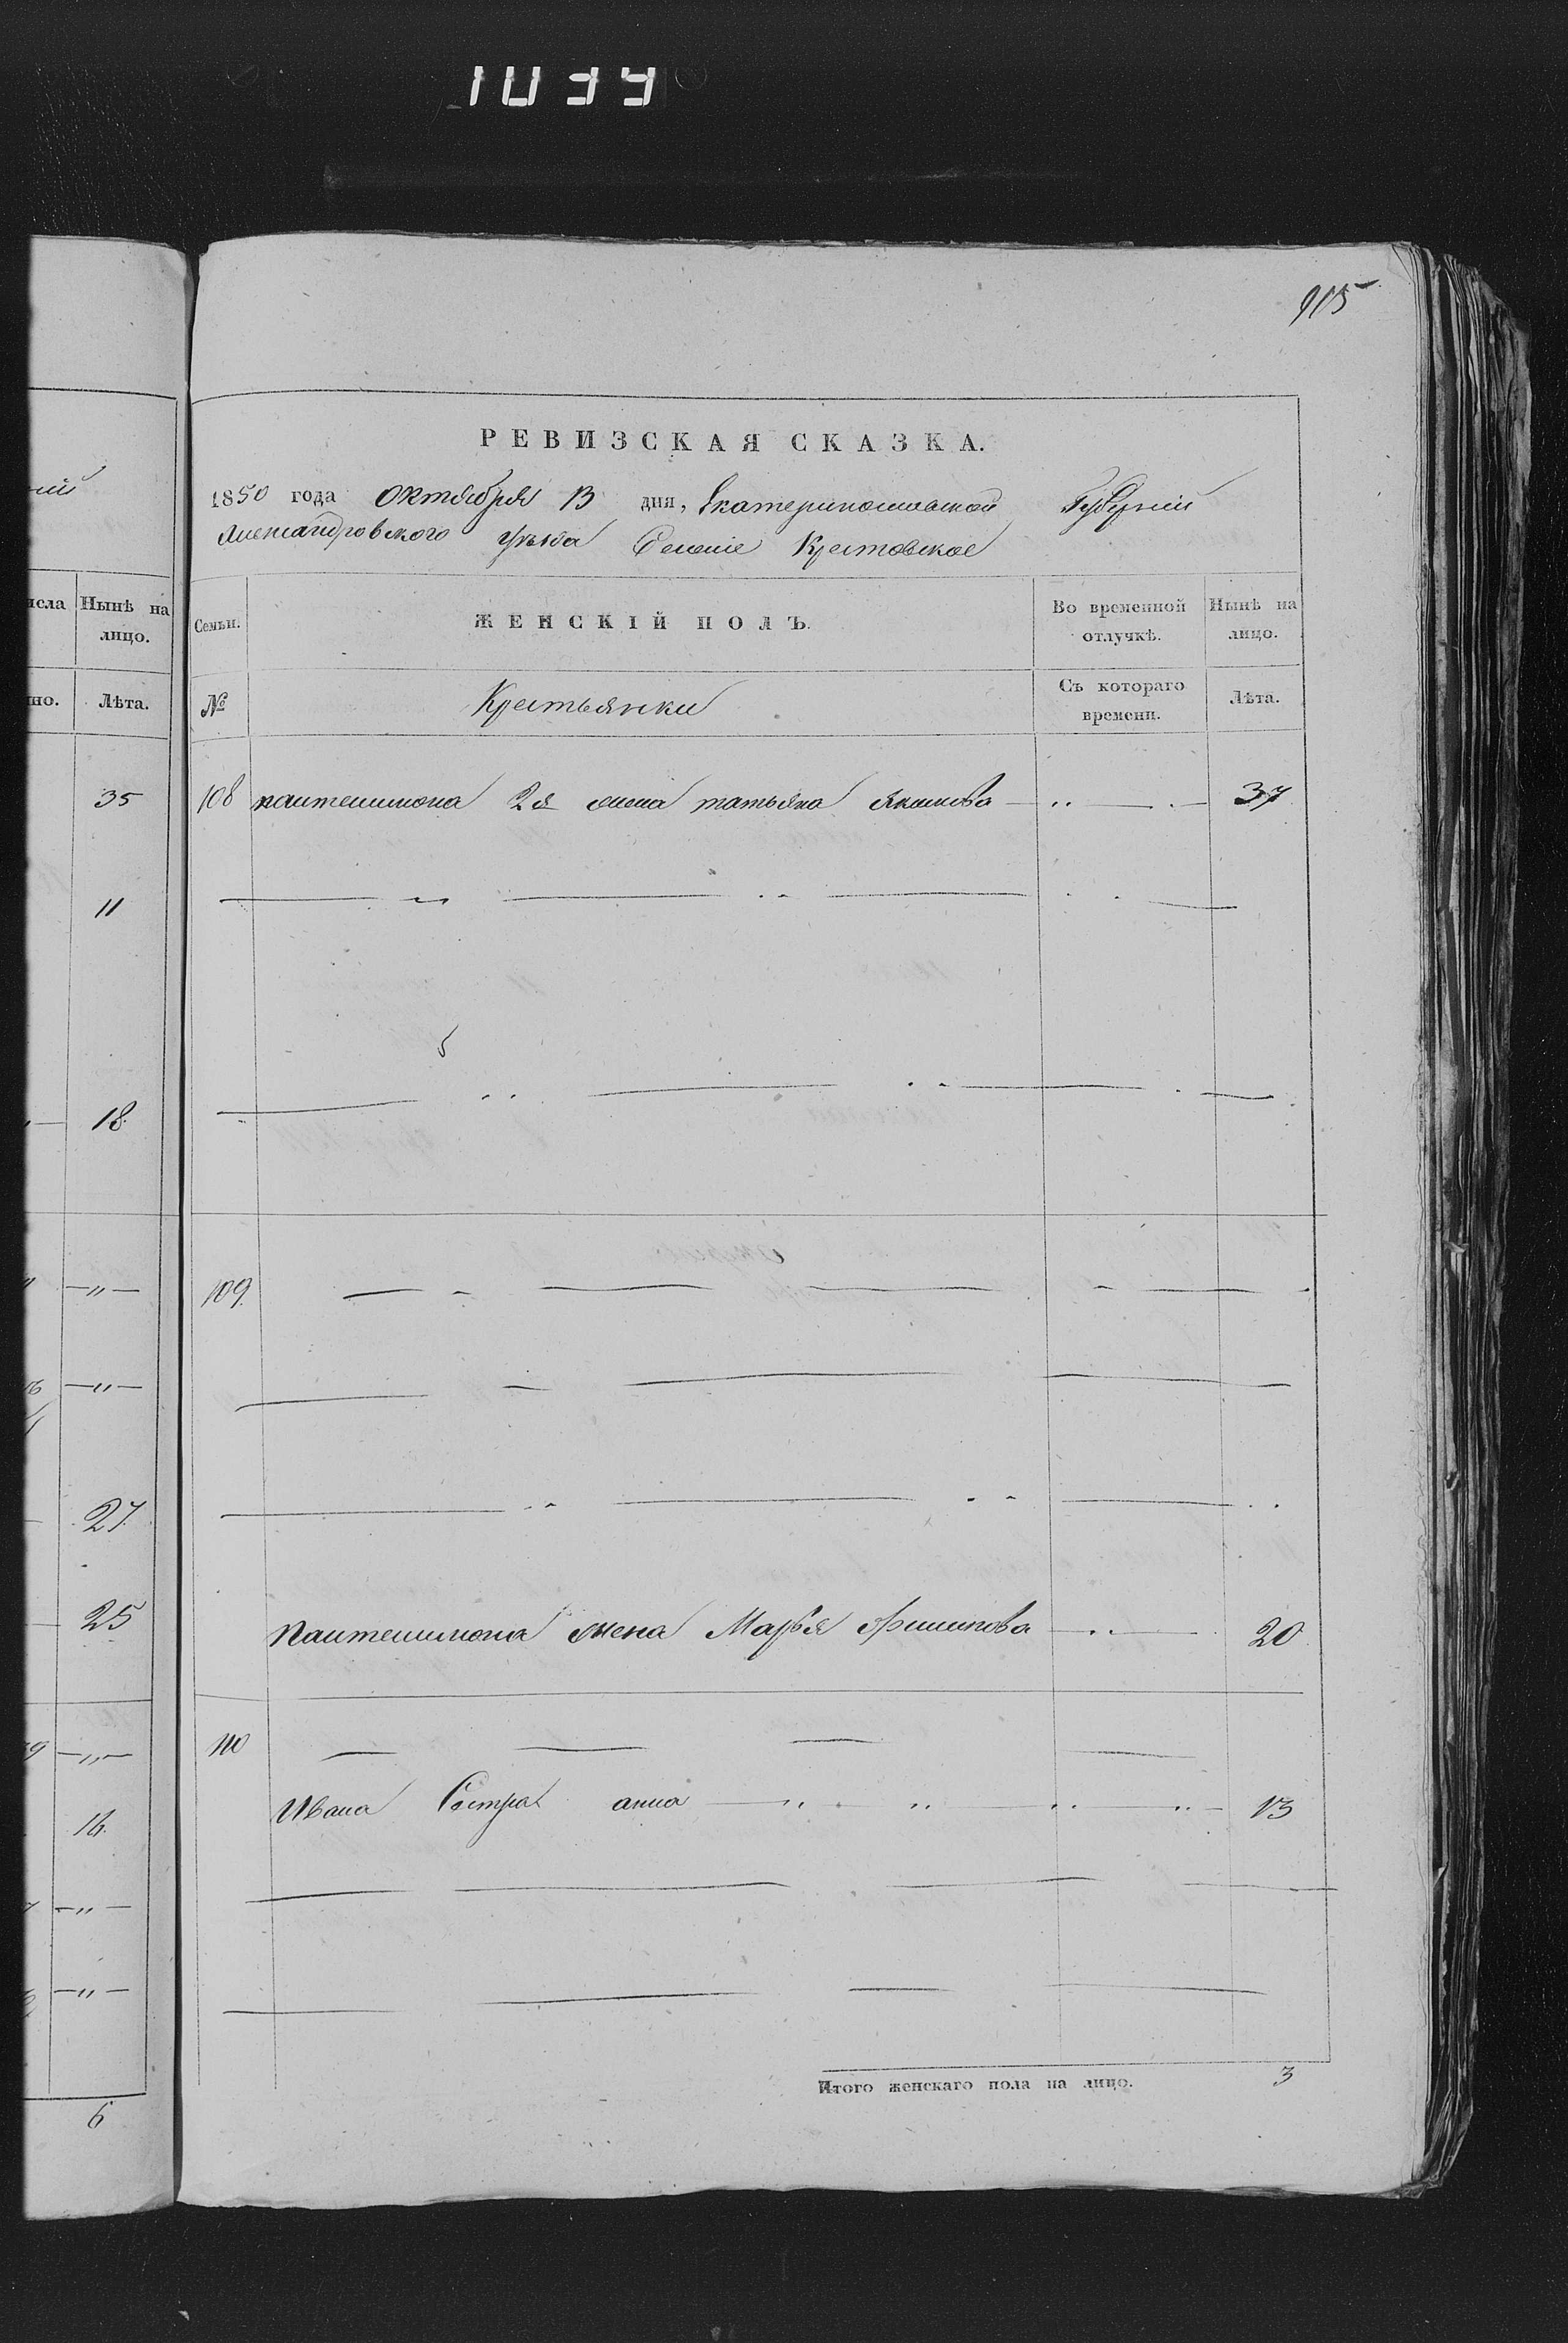 1039
915
РЕВИЗСКАЯ СКАЗКА.
1850 года Октября 13 дня, Екатеринославской Губерніи
Александровского уѣзда Селеніе Крестовское
Семьи. ЖЕНСКІЙ ПОЛЪ. Во временной отлучкѣ. Нынѣ на лицо.
№ Крестьянки Съ котораго времени. Лѣта.
108 пантелимона 2я жена татьяна Якимова — „ — 37
109
Пантелимона жена Марья Филипова — „ — 20
110
Ивана Сестра анна — „ „ „ „ — 13
Итого женскаго пола на лицо. 3
Нынѣ на лицо.
Лѣта.
35
11
18
— „ —
— „ —
27
25
— „ —
16
— „ —
— „ —
6